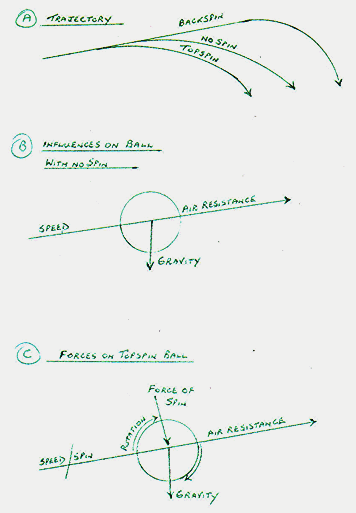 A TRAJECTORY
BACKSPIN
NO SPIN
TOPSPIN
B INFLUENCES ON BALL
WITH NO SPIN
AIR RESISTANCE
SPEED
GRAVITY
C FORCES ON TOPSPIN BALL
FORCE OF
SPIN
ROTATION
AIR RESISTANCE
SPEED / SPIN
GRAVITY